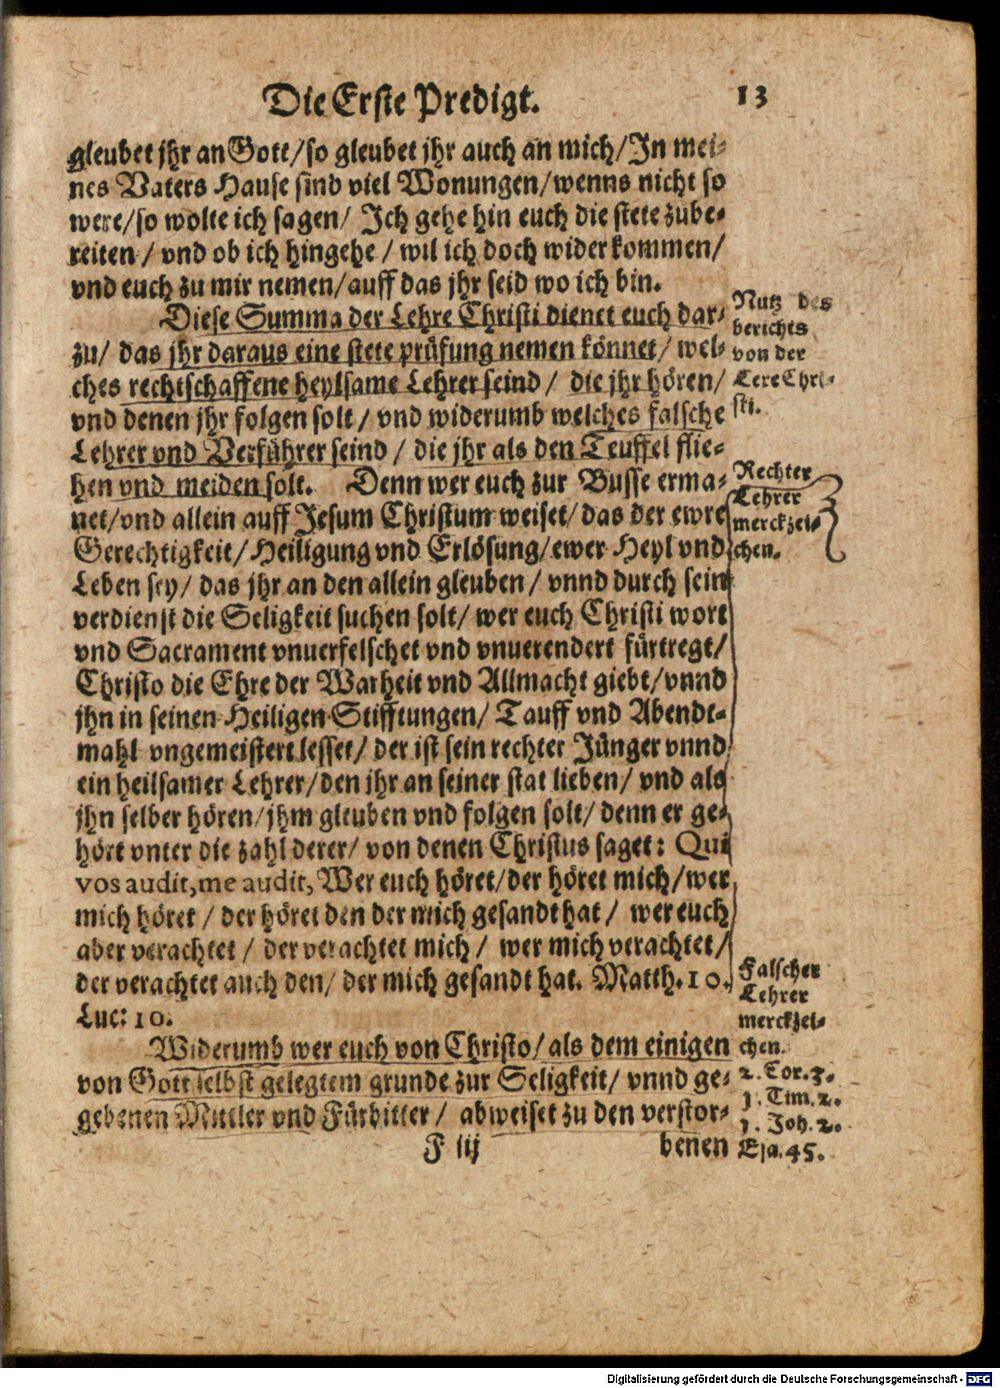 Die Erste Predigt. 13
gleubet jhr an Gott/so gleubet jhr auch an mich/In mei-
nes Vaters Hause sind viel Wonungen/wenns nicht so
were/so wolte ich sagen/ Ich gehe hin euch die stete zube-
reiten / vnd ob ich hingehe / wil ich doch wider kommen/
vnd euch zu mir nemen/auff das jhr seid wo ich bin.
Diese Summa der Lehre Christi dienet euch dar-
zu/ das jhr daraus eine stete prüfung nemen könnet/ wel-
ches rechtschaffene heylsame Lehrer seind / die jhr hören/
vnd denen jhr folgen solt / vnd widerumb welches falsche
Lehrer vnd Verführer seind / die jhr als den Teuffel flie-
hen vnd meiden solt. Denn wer euch zur Busse erma-
net/vnd allein auff Jesum Christum weiset/ das der ewre
Gerechtigkeit/ Heiligung vnd Erlösung/ewer Heyl vnd
Leben sey/ das jhr an den allein gleuben / vnnd durch sein
verdienst die Seligkeit suchen solt/ wer euch Christi wort
vnd Sacrament vnuerfelschet vnd vnuerendert fürtregt/
Christo die Ehre der Warheit vnd Allmacht giebt/vnnd
jhn in seinen Heiligen Stifftungen/ Tauff vnd Abendt-
mahl vngemeistert lesset/ der ist sein rechter Jünger vnnd
ein heilsamer Lehrer/den jhr an seiner stat lieben/ vnd als
jhn selber hören/jhm gleuben vnd folgen solt/ denn er ge-
hört vnter die zahl derer/ von denen Christus saget: Qui
vos audit, me audit, Wer euch höret/der höret mich/wer
mich höret / der höret den der mich gesandt hat / wer euch
aber verachtet / der verachtet mich / wer mich verachtet/
der verachtet auch den/ der mich gesandt hat. Matth. 10.
Luc: 10.
Widerumb wer euch von Christo/ als dem einigen
von Gott selbst gelegtem grunde zur Seligkeit/ vnnd ge-
gebenen Mittler vnd Fürbitter / abweiset zu den verstor-
F iij benen
Nutz des
berichts
von der
Lere Chri-
sti.
Rechter
Lehrer
merckzei-
chen.
Falscher
Lehrer
merckzei-
chen.
2. Cor. 3.
1. Tim. 2.
1. Joh. 2.
Esa. 45.
Digitalisierung gefördert durch die Deutsche Forschungsgemeinschaft - DFG